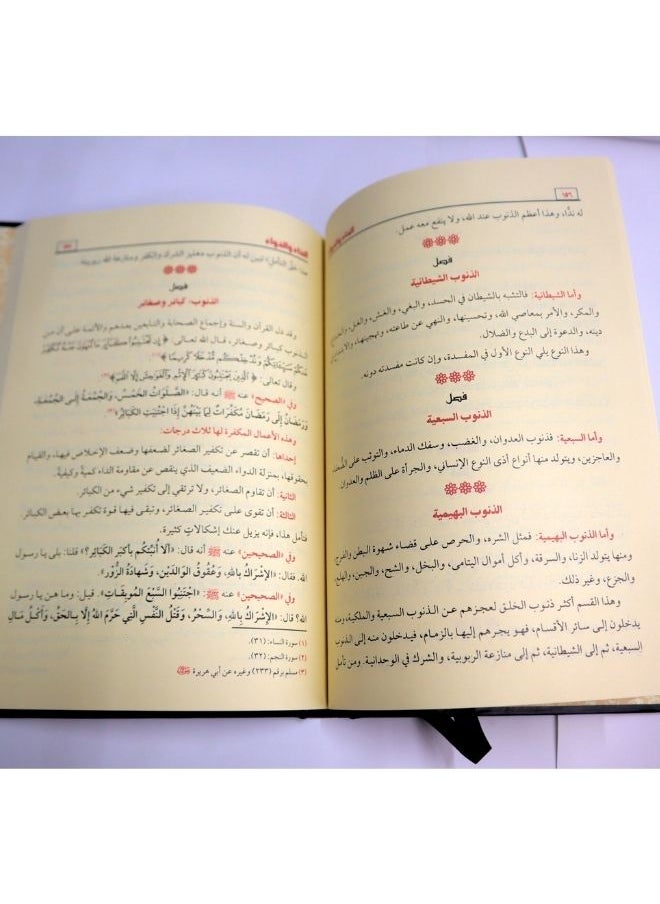 ١٥٦
الداء والدواء
له ندًّا، وهذا أعظم الذنوب عند الله، ولا ينفع معه عمل.
فصل
الذنوب الشيطانية
وأما الشيطانية: فالتشبه بالشيطان في الحسد، والبغي، والغش، والغل، والخداع
والمكر، والأمر بمعاصي الله، وتحسينها، والنهي عن طاعته، وتهجينها، والابتداع في
دينه، والدعوة إلى البدع والضلال.
وهذا النوع يلي النوع الأول في المفسدة، وإن كانت مفسدته دونه.
فصل
الذنوب السبعية
وأما السبعية: فذنوب العدوان، والغضب، وسفك الدماء، والتوثب على الضعفاء
والعاجزين، ويتولد منها أنواع أذى النوع الإنساني، والجرأة على الظلم والعدوان.
الذنوب البهيمية
وأما الذنوب البهيمية: فمثل الشره، والحرص على قضاء شهوة البطن والفرج،
ومنها يتولد الزنا، والسرقة، وأكل أموال اليتامى، والبخل، والشح، والجبن، والهلع،
والجزع، وغير ذلك.
وهذا القسم أكثر ذنوب الخلق لعجزهم عن الذنوب السبعية والملكية، ومنه
يدخلون إلى سائر الأقسام، فهو يجرهم إليها بالزمام، فيدخلون منه إلى الذنوب
السبعية، ثم إلى الشيطانية، ثم إلى منازعة الربوبية، والشرك في الوحدانية. ومن تأمل
الداء والدواء
هذا حق التأمل؛ تبين له أن الذنوب دهليز الشرك والكفر ومنازعة الله ربوبيته.
فصل
الذنوب: كبائر وصغائر
وقد دل القرآن والسنة وإجماع الصحابة والتابعين بعدهم والأئمة على أن من
الذنوب كبائر وصغائر، قال الله تعالى: ﴿إِن تَجْتَنِبُوا كَبَائِرَ مَا تُنْهَوْنَ عَنْهُ نُكَفِّرْ
عَنكُمْ سَيِّئَاتِكُمْ وَنُدْخِلْكُم مُّدْخَلًا كَرِيمًا﴾(١).
وقال تعالى: ﴿الَّذِينَ يَجْتَنِبُونَ كَبَائِرَ الْإِثْمِ وَالْفَوَاحِشَ إِلَّا اللَّمَمَ﴾(٢).
وفي «الصحيح» عنه ﷺ أنه قال: «الصَّلَوَاتُ الخَمْسُ، وَالجُمُعَةُ إِلَى الجُمُعَةِ،
وَرَمَضَانُ إِلَى رَمَضَانَ مُكَفِّرَاتٌ لِمَا بَيْنَهُنَّ إِذَا اجْتُنِبَتِ الكَبَائِرُ»(٣).
وهذه الأعمال المكفرة لها ثلاث درجات:
إحداها: أن تقصر عن تكفير الصغائر لضعفها وضعف الإخلاص فيها، والقيام
بحقوقها، بمنزلة الدواء الضعيف الذي ينقص عن مقاومة الداء كمية وكيفية.
الثانية: أن تقاوم الصغائر، ولا ترتقي إلى تكفير شيء من الكبائر.
الثالثة: أن تقوى على تكفير الصغائر، وتبقى فيها قوة تكفر بها بعض الكبائر.
فتأمل هذا، فإنه يزيل عنك إشكالاتٍ كثيرة.
وفي «الصحيحين» عنه ﷺ أنه قال: «أَلَا أُنَبِّئُكُم بِأَكْبَرِ الكَبَائِرِ؟» قلنا: بلى يا رسول
الله. فقال: «الإِشْرَاكُ بِاللهِ، وَعُقُوقُ الوَالِدَيْنِ، وَشَهَادَةُ الزُّورِ».
وفي «الصحيحين» عنه ﷺ: «اجْتَنِبُوا السَّبْعَ المُوبِقَاتِ». قيل: وما هن يا رسول
الله؟ قال: «الإِشْرَاكُ بِاللهِ، وَالسِّحْرُ، وَقَتْلُ النَّفْسِ الَّتِي حَرَّمَ اللهُ إِلَّا بِالحَقِّ، وَأَكْلُ مَالِ
(١) سورة النساء: (٣١).
(٢) سورة النجم: (٣٢).
(٣) مسلم برقم (٢٣٣) وغيره عن أبي هريرة